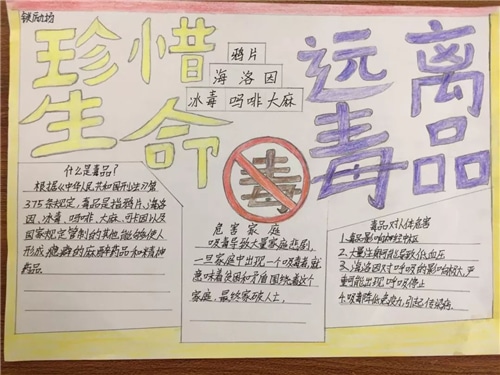 珍惜
生命
鸦片
海洛因
冰毒 吗啡 大麻
远离
毒品
毒
什么是毒品?
根据《中华人民共和国刑法》第
375条规定,毒品是指鸦片、海洛
因、冰毒、吗啡、大麻、可卡因以及
国家规定管制的其他能够使人
形成瘾癖的麻醉药品和精神
药品。
危害家庭
吸毒导致大量家庭悲剧,
一旦家庭中出现一个吸毒者,就
意味着贫困和矛盾围绕着这个
家庭,最终家破人亡。
毒品对人体危害
1.毒品影响神经中枢
2.大量注射可能导致低血压
3.海洛因对呼吸的影响极大,严
重时能出现呼吸停止
4.吸毒降低免疫力,引起传染病。